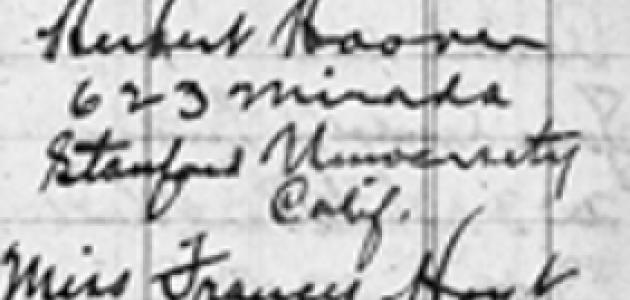 Herbert Hoover
623 Mirada
Stanford University
Calif.
Miss Frances Hoyt